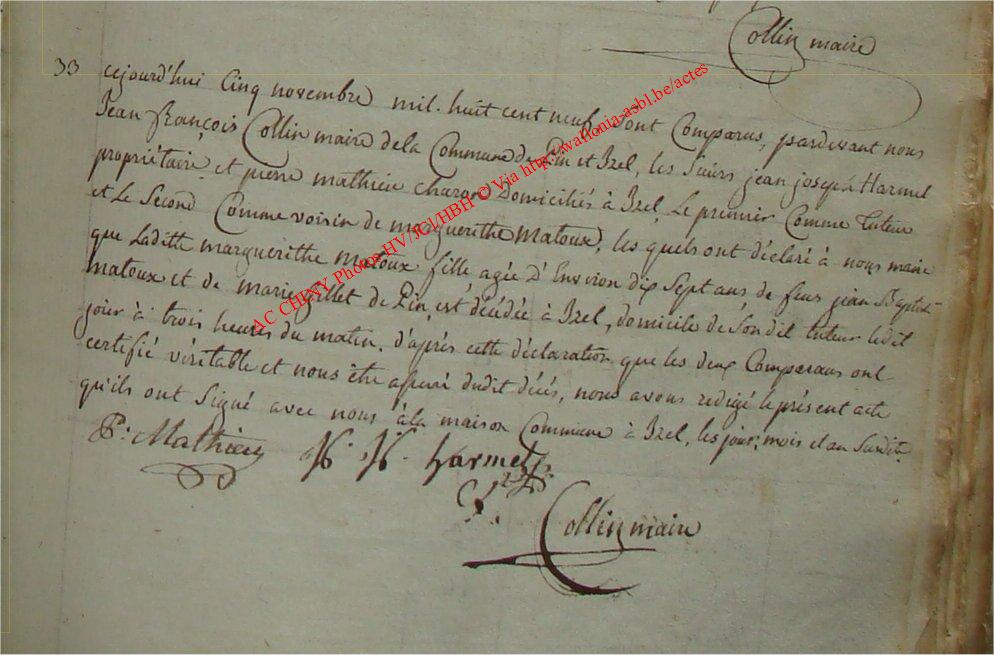 Collin maire
33 cejourd'hui Cinq novembre mil. huit cent neuf sont Comparus, pardevant nous
Jean françois Collin maire dela Commune de Pin et Izel, les Sieurs jean joseph Harmel
propriétaire et pierre mathieu charon Domiciliés à Izel, Le premier Comme tuteur
et Le Second Comme voisin de marguerithe Matoux, les quels ont déclaré à nous maire
que Laditte marguerithe Matoux fille agée d'Environ dix Sept ans de feus jean Baptiste
matoux et de marie gillet de Pin, est décédée à Izel, domicile de Son dit tuteur ledit
jour à trois heures du matin. d'après cette déclaration que les deux Comparans ont
certifié véritable et nous être assuré dudit décés, nous avons redigé le présent acte
qu'ils ont Signé avec nous à la maison Commune à Izel, les jour, mois et an Susdits.
P: Mathieu
harmel
Collin maire
AC CHINY Photos HV/JCl/HBH © Via http://wallonia-asbl.be/actes